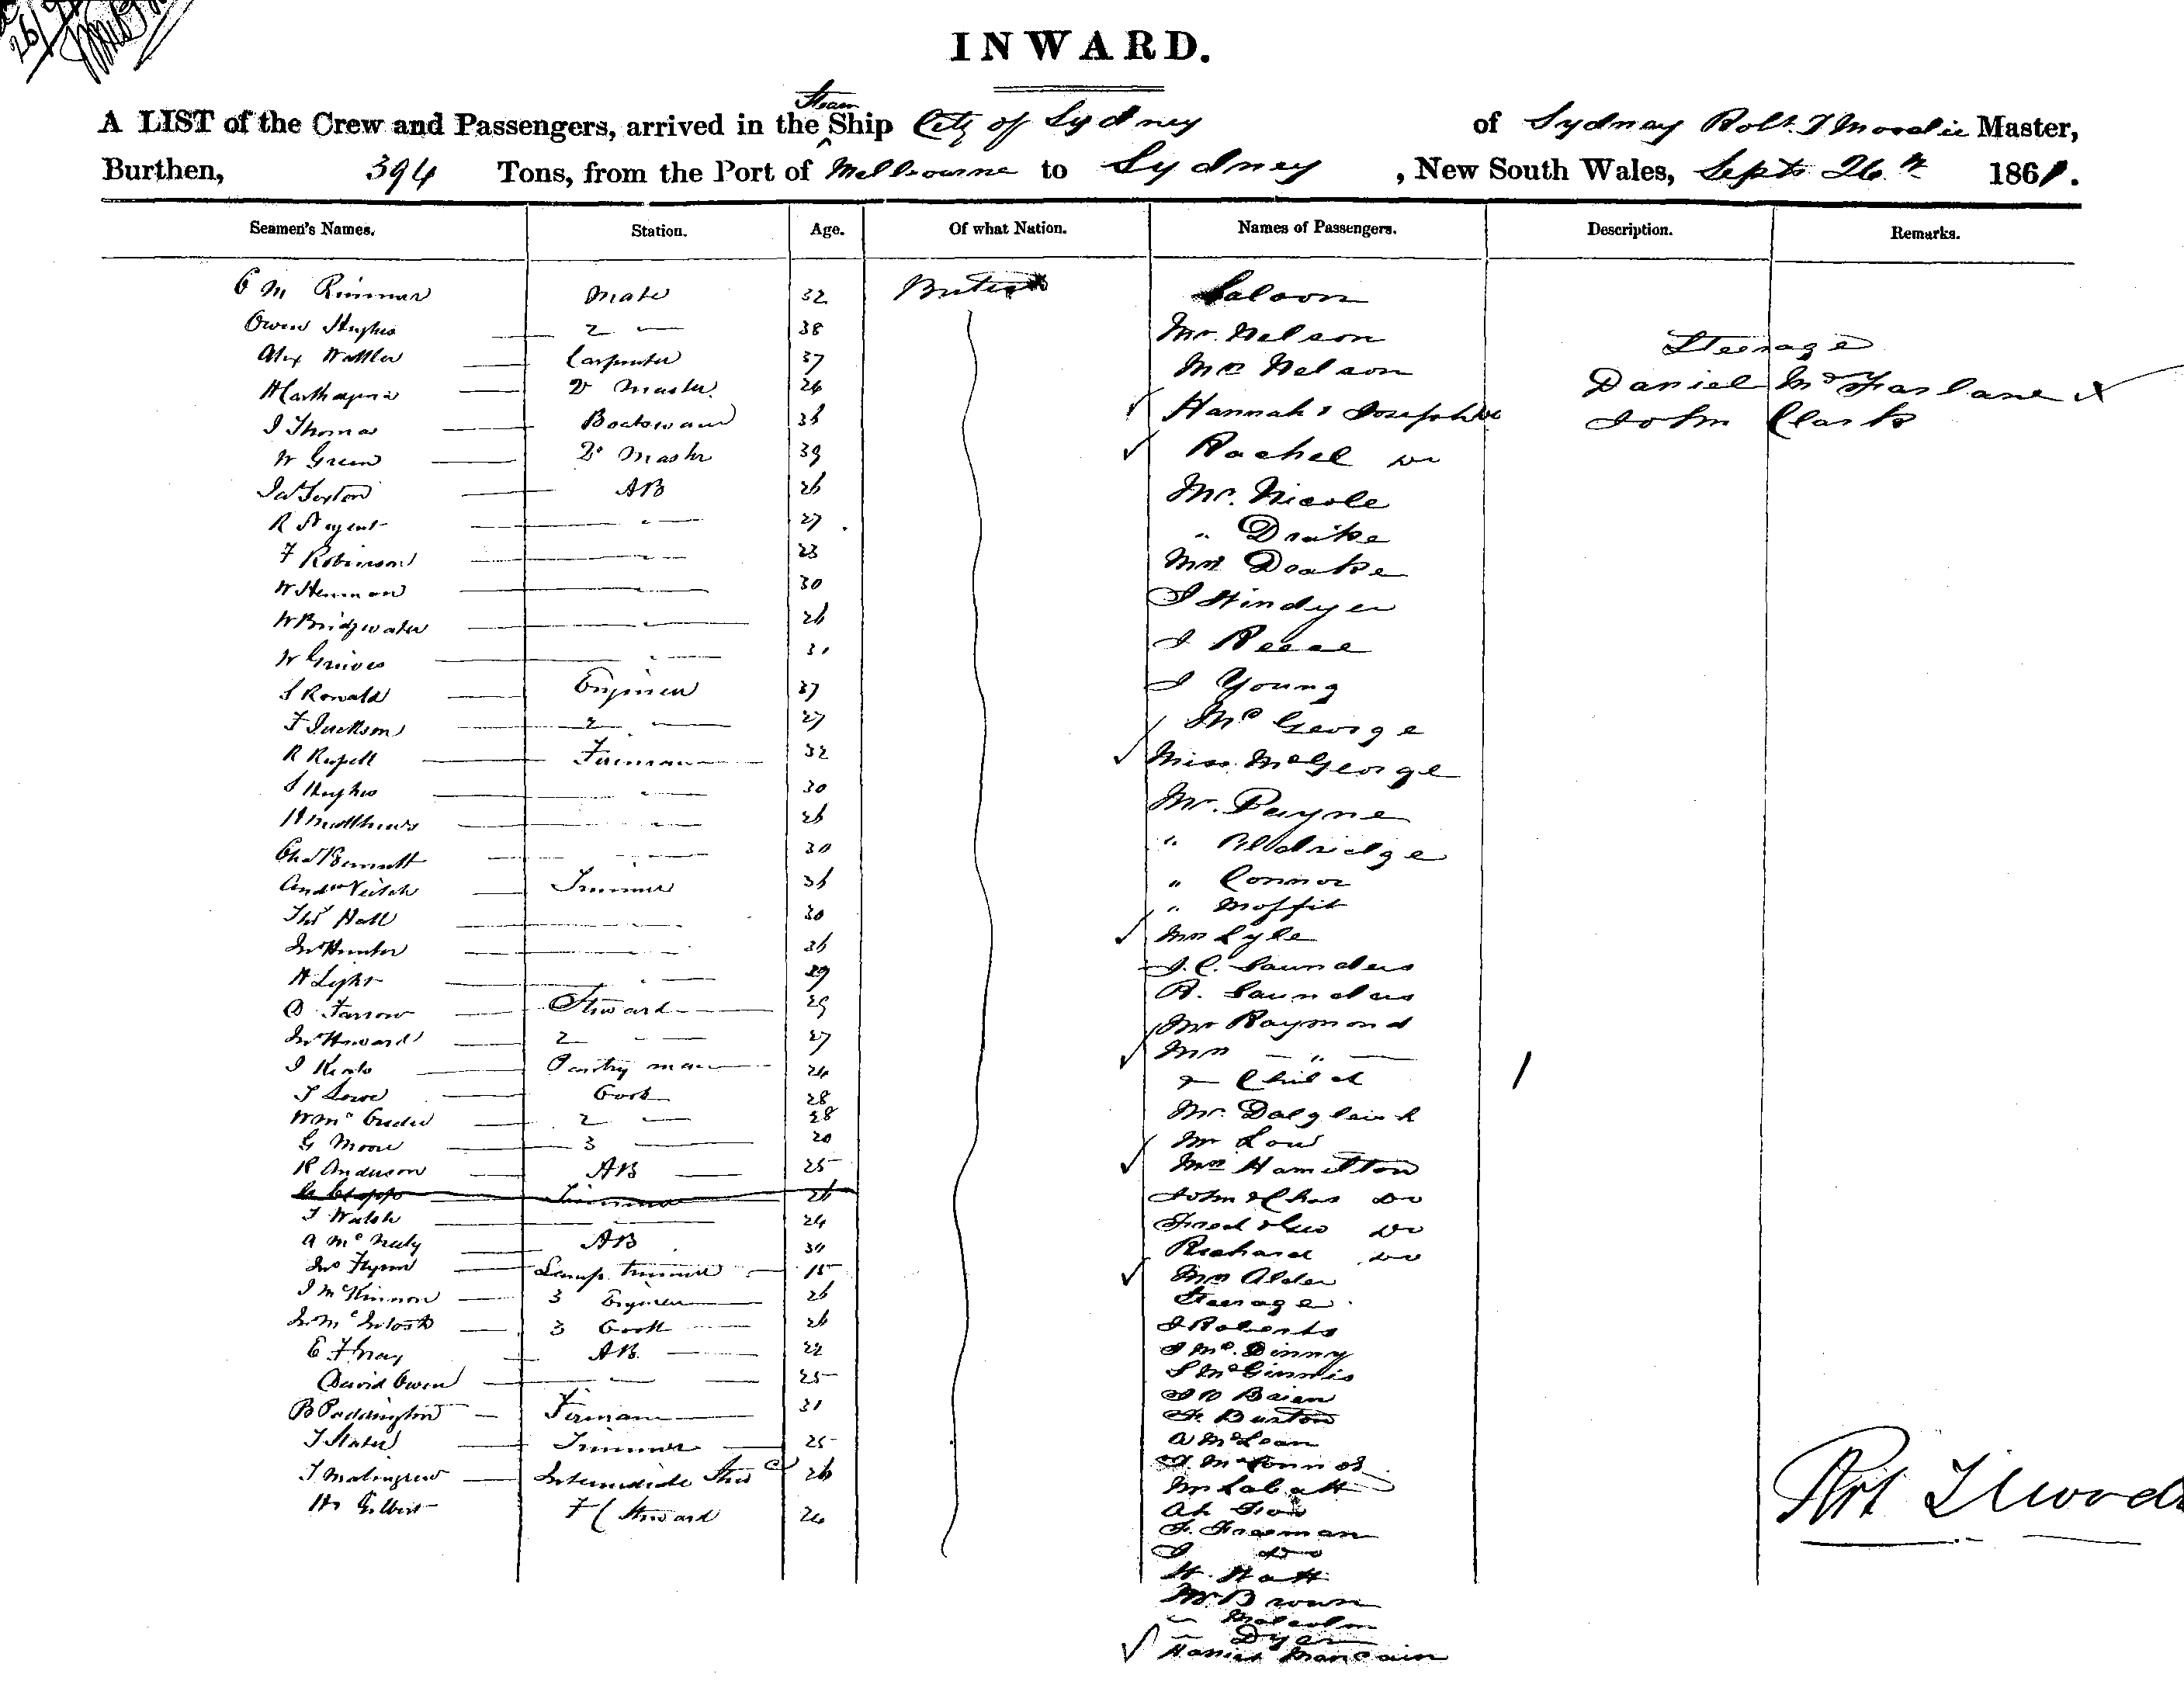 26/9
INWARD.
A LIST of the Crew and Passengers, arrived in the Steam Ship City of Sydney of Sydney Robt. T Moodie Master,
Burthen, 394 Tons, from the Port of Melbourne to Sydney, New South Wales, Septr 26th 1861.
Seamen's Names. Station. Age. Of what Nation. Names of Passengers. Description. Remarks.
C M Rimmer Mate 32 British Saloon
Owen Hughes 2 " 38 Mr. Nelson Steerage
Alex Carpenter 37 Mrs Nelson Daniel McFarlane X
Master 24 Hannah & Josephine John Clark
J Thomas Boatswain 36 Rachel Do
W Green Master 39 Mr. Nicole
AB 26 " Drake
R Nugent " 27 Mrs Drake
F Robinson " 23 J Windyer
W Henman " 30 J Reece
W Bridgwater " 26 J Young
W Grieves " 31 McGeorge
S Ronald Engineer 37 Miss McGeorge
F Jackson 2 " 27 Mr. Payne
R Russell Fireman 32 " Aldridge
S Hughes " 30 " Connor
H Matthews " 26 " Moffit
Chas Bennett " 30 Mrs Lyle
Andw Veitch Trimmer 36 J. C. Saunders
Thos Hall " 30 R. Saunders
Jno Hunter " 36 Mr Raymond
H Light " 29 Mrs "
D Farrow Steward 29 & Child 1
Jno Howard 2 " 27 Mr. Dalgleish
J Pantry man 24 Mr Low
T Lowe Cook 28 Mrs Hamilton
2 " 28 John & Chas Do
G Moore 3 20 Fred & Geo Do
R Anderson AB 25 Richard Do
Trimmer 26 Mrs Alder
T Walsh " 24 Steerage.
A McNeely AB 30 J Roberts
Jno Flynn Lamp trimmer 15 J McDinny
J McKinnon 3 Engineer 26 S McGinnis
Jno McIntosh 3 Cook 26 J O Brien
E F AB 22 F. Burton
David Owen " 25 A McLean
B Paddington Fireman 31 A McConnol
T Slater Trimmer 25 Mr Labatt
T Intermediate Stewd 26 Ah
Hy Gilbert F C Steward 24 F. Freeman
J Do
H. Hatt
Mr Brown
" Malcolm
" Dyer
Rt T Moodie